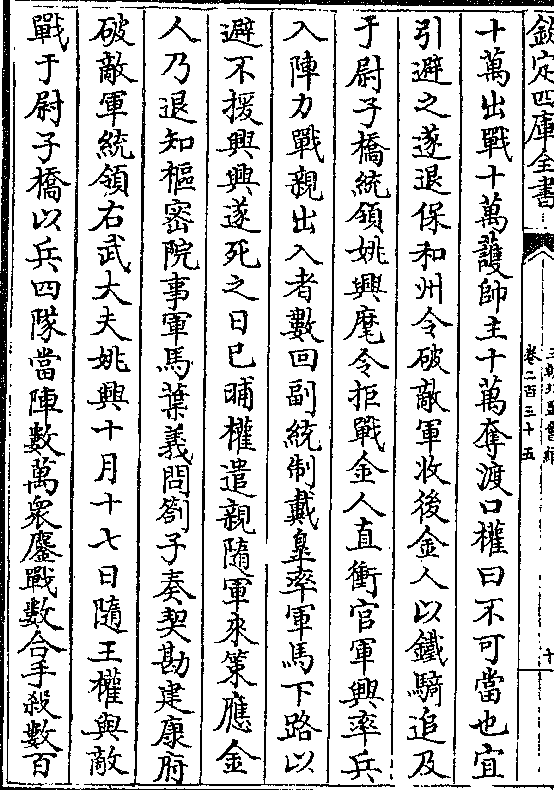 欽定四庫全書
卷二百三十五
十萬出戰十萬䕶帥主十萬奪渡口權曰不可當也宜
引避之遂退保和州令破敵軍收後金人以鐵騎追及
于尉子橋統領姚興麾令拒戰金人直衝官軍興率兵
入陣力戰親出入者數回副統制戴臯率軍馬下路以
避不援興興遂死之日已晡權遣親隨軍來策應金
人乃退知樞密院事軍馬葉義問劄子奏契勘建康府
破敵軍統領右武大夫姚興十月十七日隨王權與敵
戰于尉子橋以兵四隊當陣數萬衆鏖戰數合手殺數百